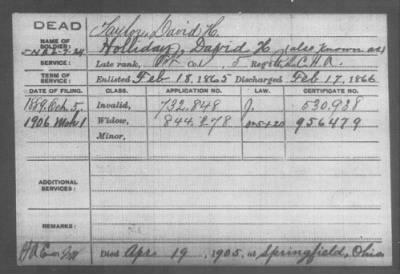 DEAD
Taylor, David H.
NAME OF SOLDIER:
Holliday, David H. (also known as)
SERVICE:
Late rank, Pvt Co. 5 Reg't U.S.C.H.A.
TERM OF SERVICE:
Enlisted Feb 18, 1865 Discharged Feb 17, 1866
DATE OF FILING. CLASS. APPLICATION NO. LAW. CERTIFICATE NO.
1889, Oct 5, Invalid, 732.848 J. 530.938
1906 Mch 1 Widow, 844.278 956479
Minor,
ADDITIONAL SERVICES:
REMARKS:
Died Apr 19, 1905, at Springfield, Ohio